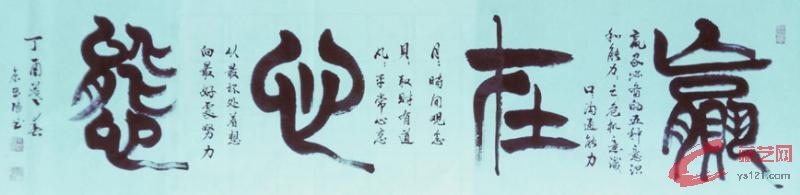 赢
赢家必有的五种意识
和能力,亡危机意识
口沟通能力
在
月時间观念
贝取财有道
凡平常心态
心
以最坏处着想
向最好处努力
態
丁酉暮春
艺网
ys121.com